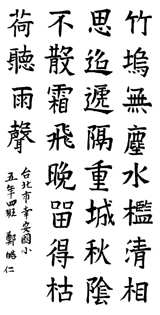 竹塢無塵水檻清相
思迢遞隔重城秋陰
不散霜飛晚畱得枯
荷聽雨聲
台北市幸安國小
五年四班 鄭皓仁